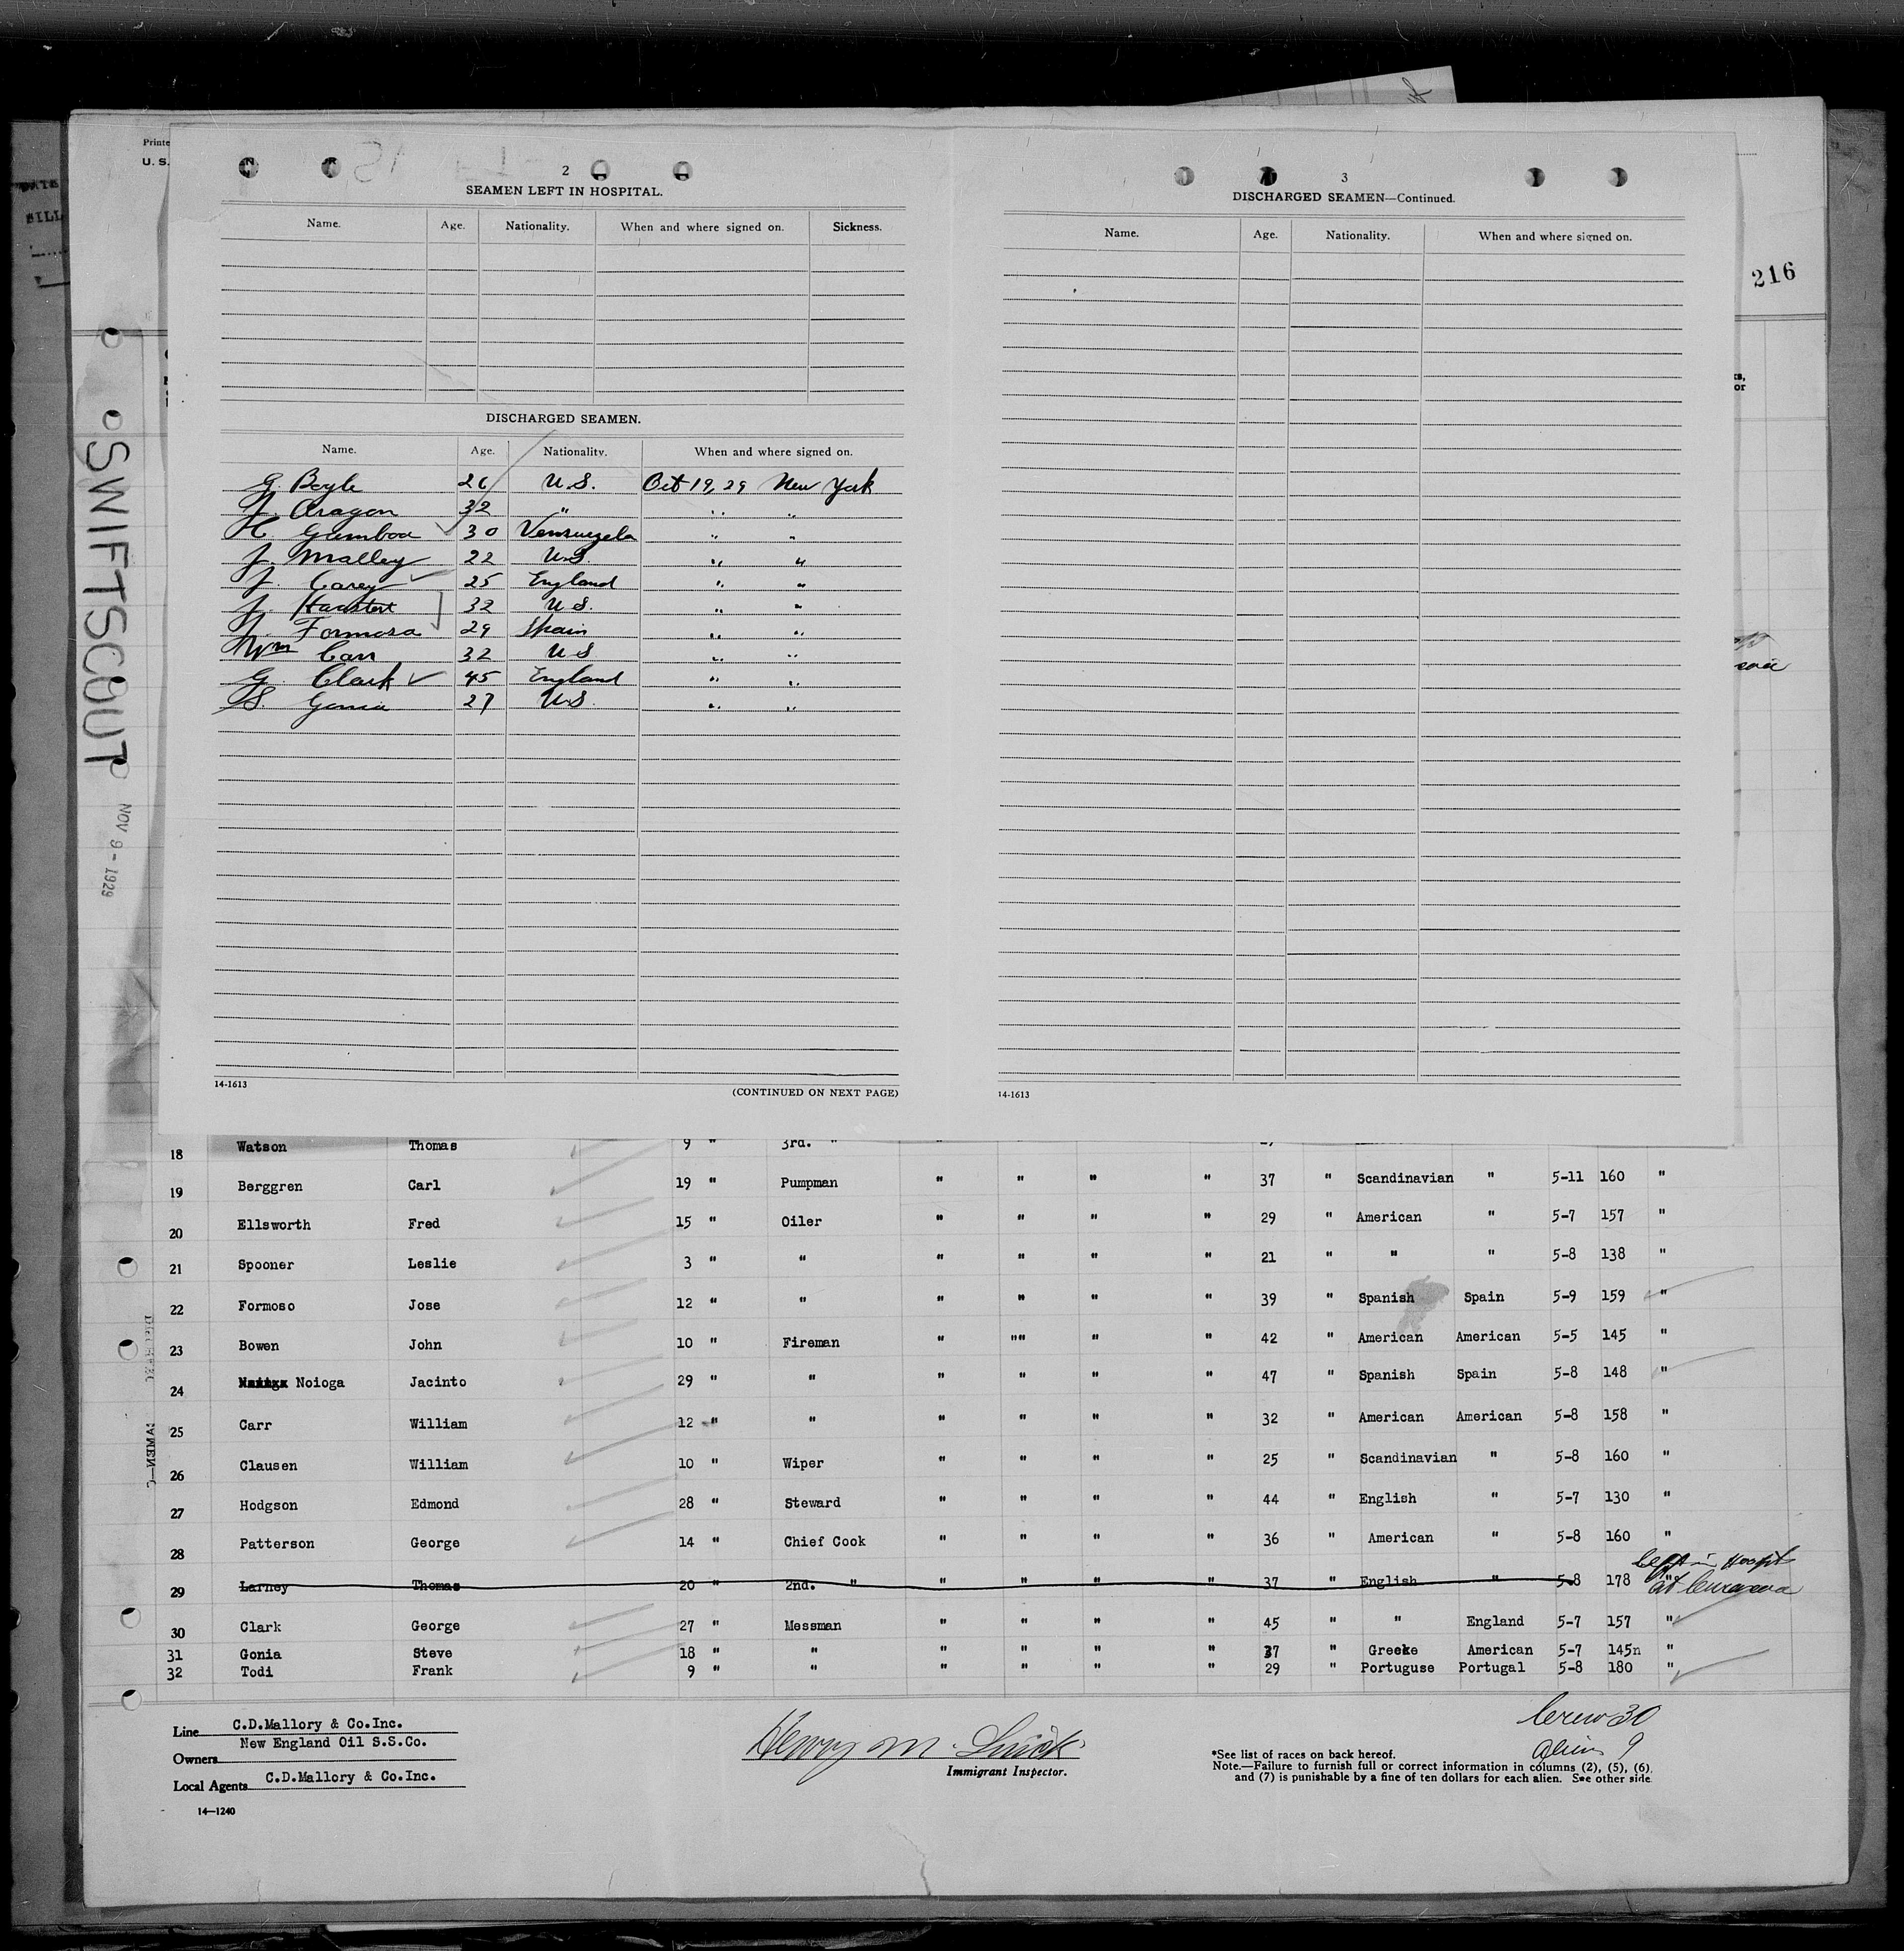 Printe
U. S.
2
SEAMEN LEFT IN HOSPITAL.
Name. Age. Nationality. When and where signed on. Sickness.
DISCHARGED SEAMEN.
Name. Age. Nationality. When and where signed on.
G. Boyle 26 U.S. Oct 19, 29 New York
J. Aragon 32 " " "
H. Gamboa 30 Venzuezela " "
J. Malley 22 U.S. " "
J. Carey 25 England " "
J. 32 U.S. " "
J. Formosa 29 Spain " "
Wm Carr 32 U.S " "
G. Clark 45 England " "
S. Gonia 27 U.S. " "
14-1613 (CONTINUED ON NEXT PAGE)
3
DISCHARGED SEAMEN—Continued.
Name. Age. Nationality. When and where signed on.
14-1613
216
SWIFTSCOUT
NOV 9 - 1929
18 Watson Thomas 9 " 3rd. "
19 Berggren Carl 19 " Pumpman " " " " 37 " Scandinavian " 5-11 160 "
20 Ellsworth Fred 15 " Oiler " " " " 29 " American " 5-7 157 "
21 Spooner Leslie 3 " " " " " " 21 " " " 5-8 138 "
22 Formoso Jose 12 " " " " " " 39 " Spanish Spain 5-9 159 "
23 Bowen John 10 " Fireman " "" " " 42 " American American 5-5 145 "
24 Noioga Jacinto 29 " " " " " " 47 " Spanish Spain 5-8 148 "
25 Carr William 12 " " " " " " 32 " American American 5-8 158 "
26 Clausen William 10 " Wiper " " " " 25 " Scandinavian " 5-8 160 "
27 Hodgson Edmond 28 " Steward " " " " 44 " English " 5-7 130 "
28 Patterson George 14 " Chief Cook " " " " 36 " American " 5-8 160 "
Left in Hospit
29 Larney Thomas 20 " 2nd. " " " " " 37 " English " 5-8 178 "
at Curacoa
30 Clark George 27 " Messman " " " " 45 " " England 5-7 157 "
31 Gonia Steve 18 " " " " " " 37 " Greeke American 5-7 145n "
32 Todi Frank 9 " " " " " " 29 " Portuguse Portugal 5-8 180 "
Line C.D.Mallory & Co.Inc.
Owners New England Oil S.S.Co.
Local Agents C.D.Mallory & Co.Inc.
14—1240
Henry M.
Immigrant Inspector.
Crew 30
Aliens 9
*See list of races on back hereof.
Note.—Failure to furnish full or correct information in columns (2), (5), (6),
and (7) is punishable by a fine of ten dollars for each alien. See other side